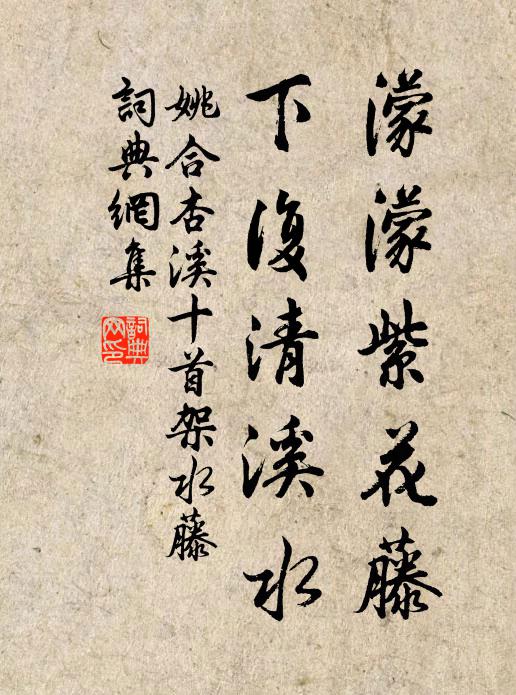 濛濛紫花藤
下復清溪水
姚合杏溪十首架水藤
詞典網集
詞典網印